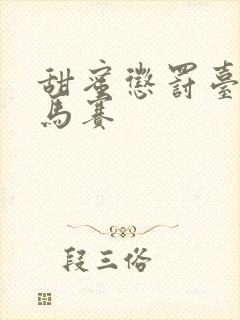 甜蜜懲罰臺
馬賽
段三俗